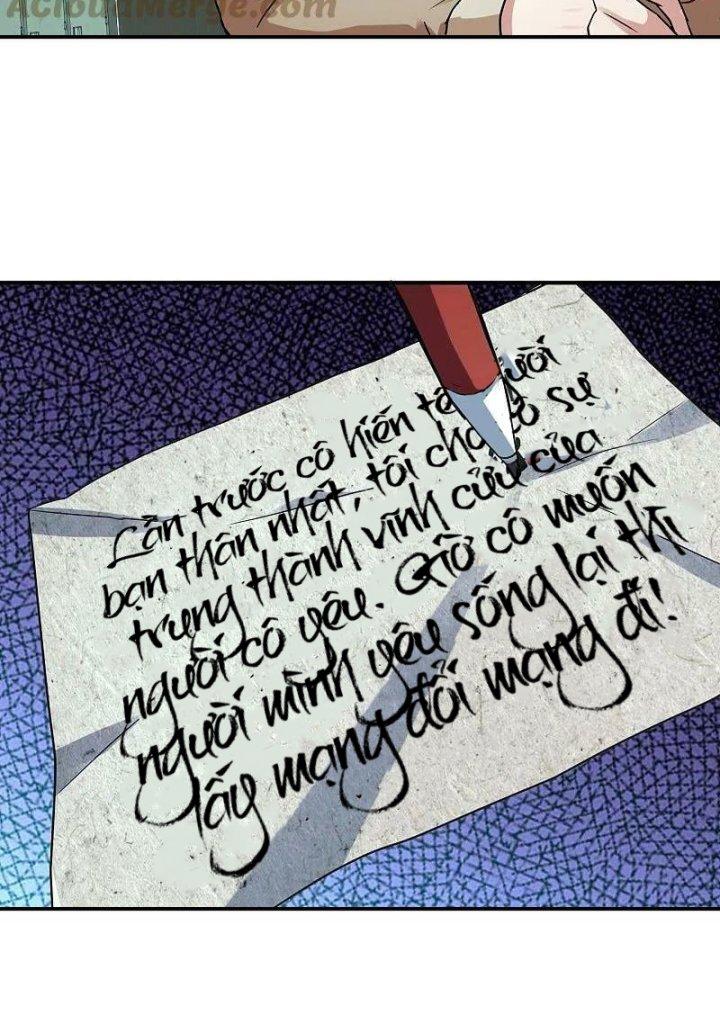 AcloudMerge.com
Lần trước cô hiến tế người
bạn thân nhất, tôi cho cô sự
trung thành vĩnh cửu của
người cô yêu. Giờ cô muốn
người mình yêu sống lại thì
lấy mạng đổi mạng đi!